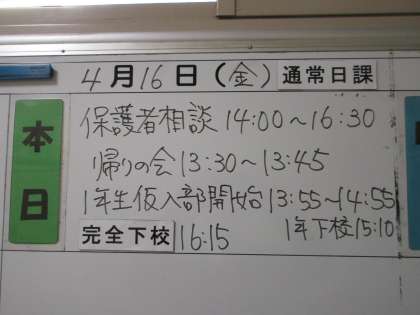 4月16日(金) 通常日課
本日
保護者相談 14:00～16:30
帰りの会 13:30～13:45
1年生仮入部開始 13:55～14:55
完全下校 16:15
1年下校 15:10